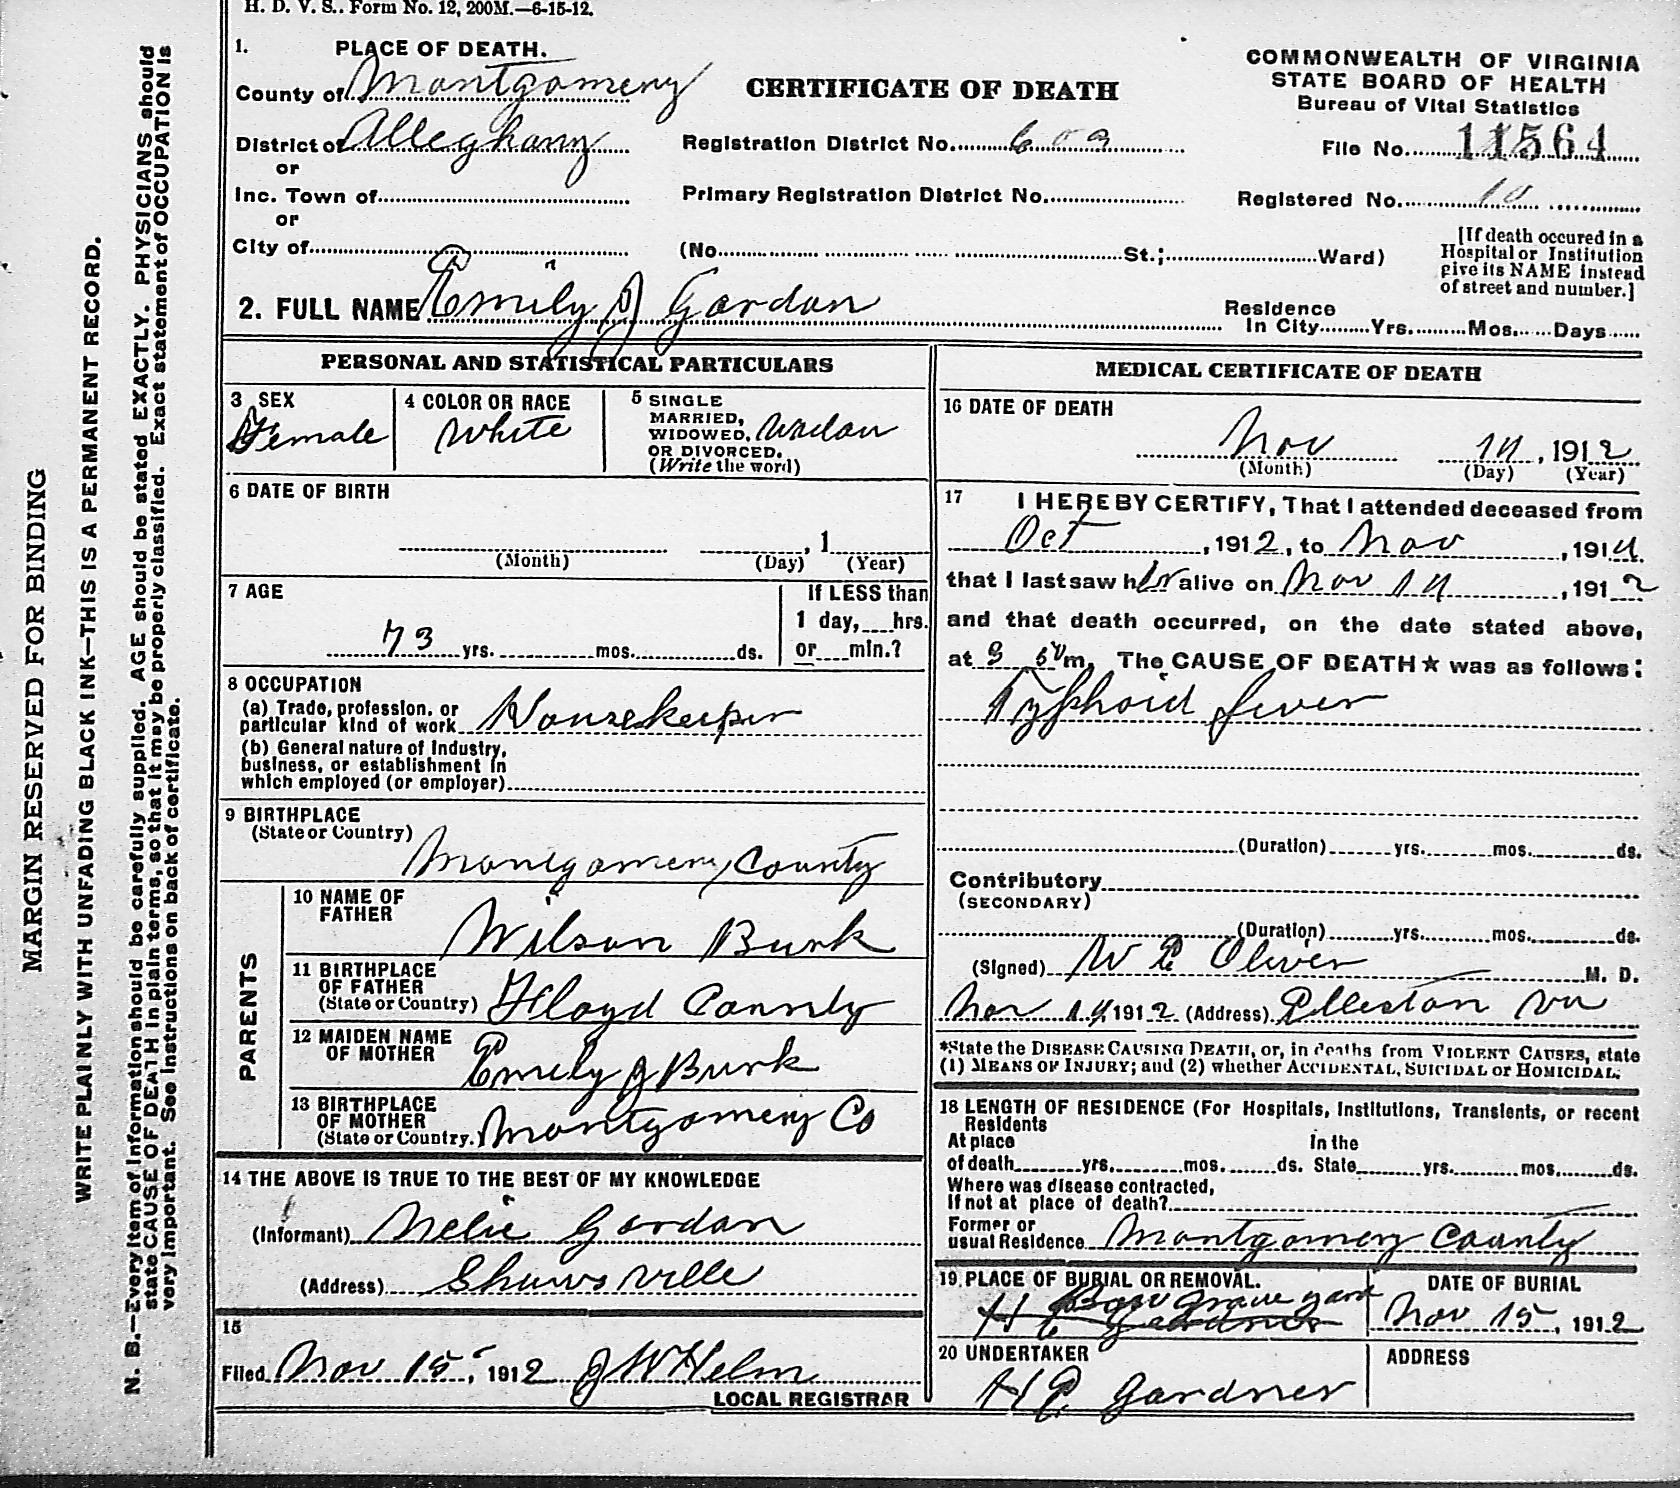 H. D. V. S.. Form No. 12, 200M.—6-15-12.
1. PLACE OF DEATH.
County of Montgomery
District of Alleghany
or
Inc. Town of
or
City of
CERTIFICATE OF DEATH
Registration District No. 609
Primary Registration District No.
(No. St.; Ward)
COMMONWEALTH OF VIRGINIA
STATE BOARD OF HEALTH
Bureau of Vital Statistics
File No. 11564
Registered No. 10
[If death occured in a
Hospital or Institution
give its NAME instead
of street and number.]
2. FULL NAME Emily J Gordan
Residence
In City Yrs. Mos. Days
PERSONAL AND STATISTICAL PARTICULARS
3 SEX
Female
4 COLOR OR RACE
White
5 SINGLE
MARRIED,
WIDOWED,
OR DIVORCED.
(Write the word)
6 DATE OF BIRTH
, 1
(Month) (Day) (Year)
7 AGE
73 yrs. mos. ds.
If LESS than
1 day, hrs.
or min.?
8 OCCUPATION
(a) Trade, profession, or
particular kind of work Housekeeper
(b) General nature of Industry,
business, or establishment in
which employed (or employer)
9 BIRTHPLACE
(State or Country)
Montgomery County
PARENTS
10 NAME OF
FATHER
Wilson Burk
11 BIRTHPLACE
OF FATHER
(State or Country) Floyd County
12 MAIDEN NAME
OF MOTHER
Emily J Burk
13 BIRTHPLACE
OF MOTHER
(State or Country. Montgomery Co
14 THE ABOVE IS TRUE TO THE BEST OF MY KNOWLEDGE
(Informant) Nelie Gordan
(Address) Shawsville
15
Filed Nov 15, 1912 J W Helm
LOCAL REGISTRAR
MEDICAL CERTIFICATE OF DEATH
16 DATE OF DEATH
Nov 14, 1912
(Month) (Day) (Year)
17 I HEREBY CERTIFY, That I attended deceased from
Oct, 1912, to Nov, 191
that I last saw her alive on Nov 14, 1912
and that death occurred, on the date stated above,
at m. The CAUSE OF DEATH* was as follows:
Typhoid fever
(Duration) yrs. mos. ds.
Contributory
(SECONDARY)
(Duration) yrs. mos. ds.
(Signed) W P Oliver M. D.
Nov 14 1912 (Address) Elleston Va
*State the DISEASE CAUSING DEATH, or, in deaths from VIOLENT CAUSES, state
(1) MEANS OF INJURY; and (2) whether ACCIDENTAL, SUICIDAL or HOMICIDAL.
18 LENGTH OF RESIDENCE (For Hospitals, Institutions, Transients, or recent
Residents
At place In the
of death yrs. mos. ds. State yrs. mos. ds.
Where was disease contracted,
If not at place of death?
Former or
usual Residence Montgomery County
19. PLACE OF BURIAL OR REMOVAL.
grave yard
H E Gardner
DATE OF BURIAL
Nov 15, 1912
20 UNDERTAKER
H E Gardner
ADDRESS
MARGIN RESERVED FOR BINDING
WRITE PLAINLY WITH UNFADING BLACK INK—THIS IS A PERMANENT RECORD.
N. B.—Every item of information should be carefully supplied. AGE should be stated EXACTLY. PHYSICIANS should
state CAUSE OF DEATH in plain terms, so that it may be properly classified. Exact statement of OCCUPATION is
very important. See instructions on back of certificate.